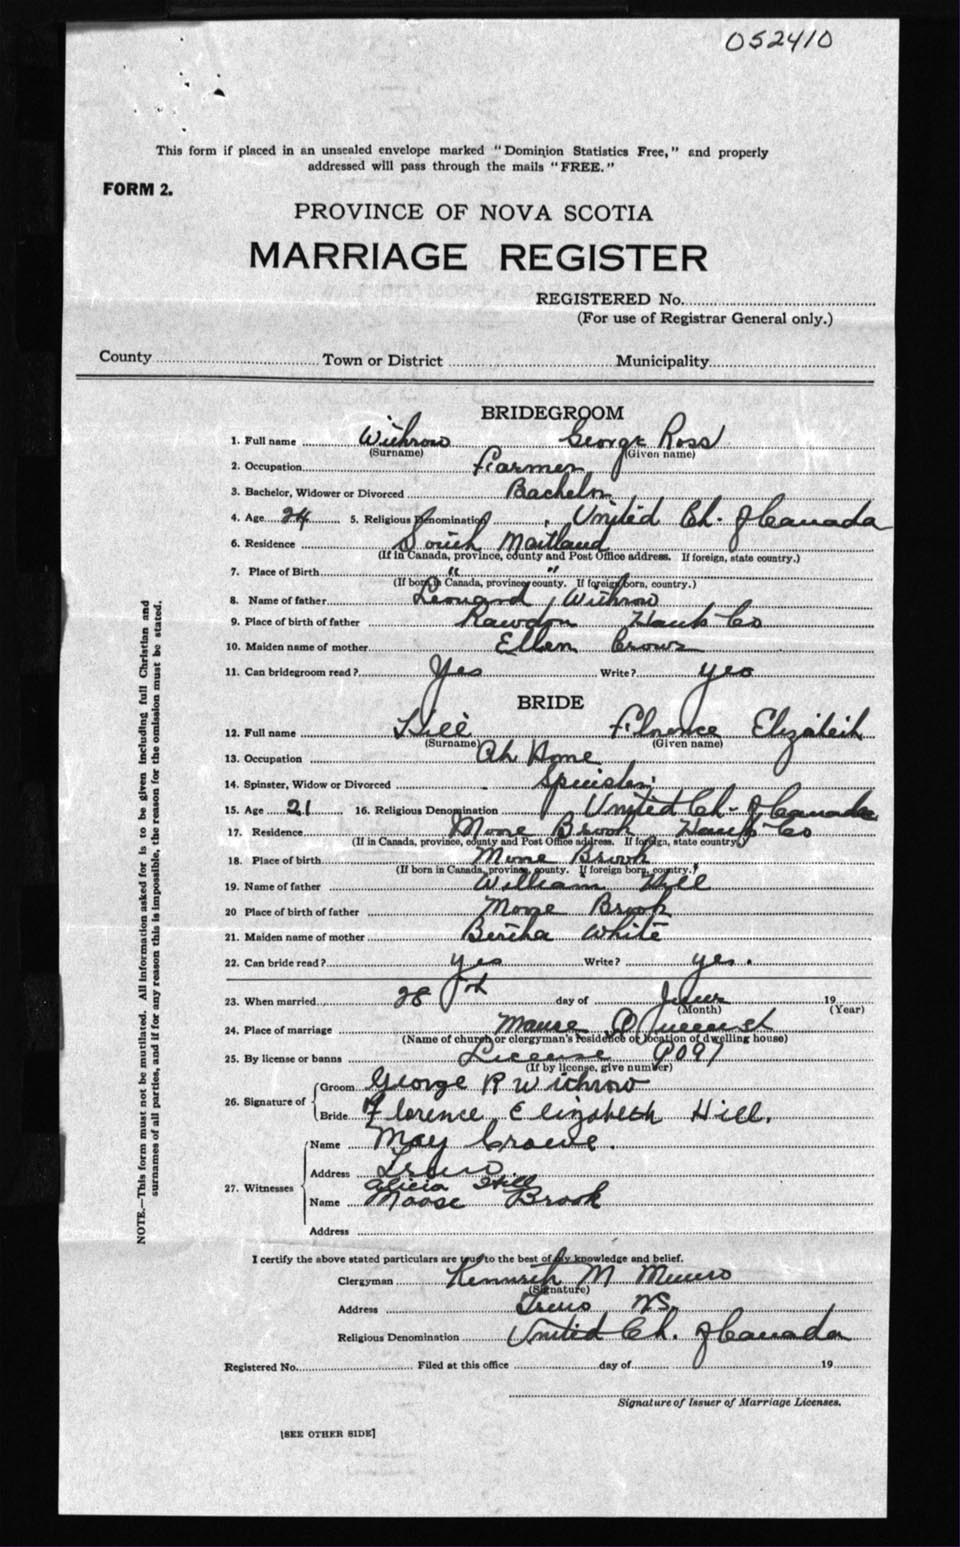 052410
This form if placed in an unsealed envelope marked "Dominion Statistics Free," and properly
addressed will pass through the mails "FREE."
FORM 2.
PROVINCE OF NOVA SCOTIA
MARRIAGE REGISTER
REGISTERED No.
(For use of Registrar General only.)
County Town or District Municipality
BRIDEGROOM
1. Full name Withrow George Ross
(Surname) (Given name)
2. Occupation Farmer
3. Bachelor, Widower or Divorced Bachelor
4. Age 24 5. Religious Denomination United Ch. of Canada
6. Residence South Maitland
(If in Canada, province, county and Post Office address. If foreign, state country.)
7. Place of Birth " "
(If born in Canada, province, county. If foreign born, country.)
8. Name of father Leonard Withrow
9. Place of birth of father Rawdon Hants Co
10. Maiden name of mother Ellen Crowe
11. Can bridegroom read? Yes Write? yes
BRIDE
12. Full name Hill Florence Elizabeth
(Surname) (Given name)
13. Occupation At Home
14. Spinster, Widow or Divorced Spinster
15. Age 21 16. Religious Denomination United Ch. of Canada
17. Residence Moose Brook Hants Co
(If in Canada, province, county and Post Office address. If foreign, state country.)
18. Place of birth Moose Brook
(If born in Canada, province, county. If foreign born, country.)
19. Name of father William Hill
20 Place of birth of father Moose Brook
21. Maiden name of mother Bertha White
22. Can bride read? yes Write? yes.
23. When married 28th day of June 19
(Month) (Year)
24. Place of marriage Manse
(Name of church or clergyman's residence or location of dwelling house)
25. By license or banns License P097
(If by license, give number)
26. Signature of Groom George R Withrow
Bride Florence Elizabeth Hill.
27. Witnesses Name May Crowe.
Address Truro
Alicia Hill
Name Moose Brook
Address
I certify the above stated particulars are true to the best of my knowledge and belief.
Clergyman Kenneth M Munro
(Signature)
Address Truro NS
Religious Denomination United Ch. of Canada
Registered No. Filed at this office day of 19
Signature of Issuer of Marriage Licenses.
[SEE OTHER SIDE]
NOTE.—This form must not be mutilated. All information asked for is to be given including full Christian and
surnames of all parties, and if for any reason this is impossible, the reason for the omission must be stated.